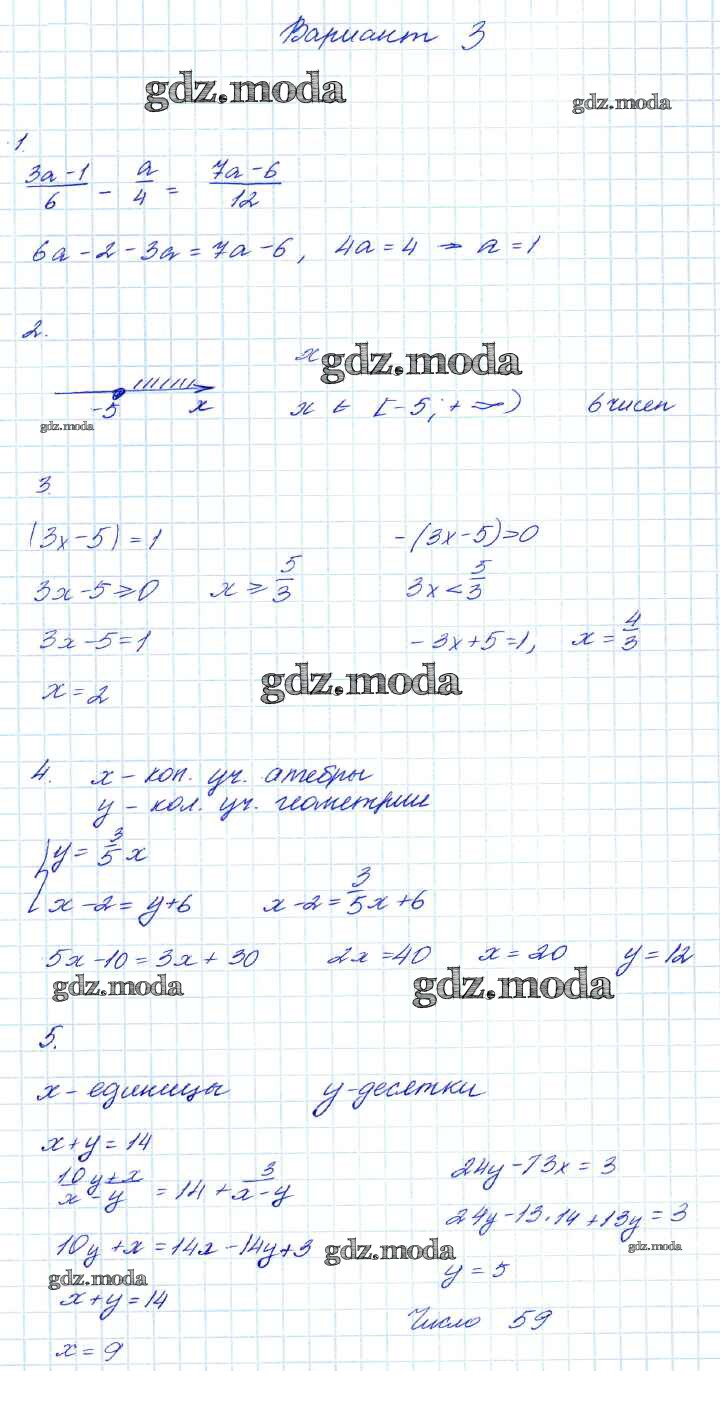 Вариант 3
gdz.moda
gdz.moda
1.
(3a-1)/6 - a/4 = (7a-6)/12
6a-2-3a=7a-6, 4a=4 → a=1
2.
x gdz.moda
-5 x
x ∈ [-5; +∞) 6 чисел
gdz.moda
3.
|3x-5|=1 -(3x-5)>0
3x-5≥0 x≥5/3 3x<5/3
3x-5=1 -3x+5=1, x=4/3
x=2
gdz.moda
4. x - кол. уч. алгебры
y - кол. уч. геометрии
y=3/5x
x-2=y+6 x-2=3/5x+6
5x-10=3x+30 2x=40 x=20 y=12
gdz.moda gdz.moda
5.
x- единицы y-десятки
x+y=14
(10y+x)/(x-y) = 14 + 3/(x-y) 24y-13x=3
24y-13·14+13y=3
10y+x=14x-14y+3 gdz.moda gdz.moda
gdz.moda y=5
x+y=14
Число 59
x=9